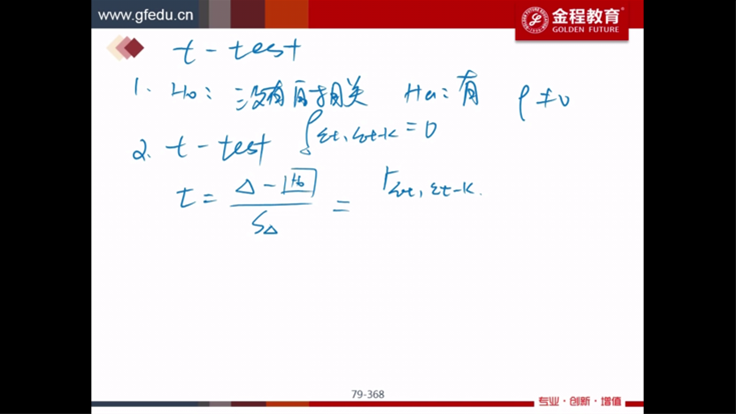 www.gfedu.cn
金程教育
GOLDEN FUTURE
t - test
1. H0: 没有自相关 Ha: 有 ρ ≠ 0
2. t - test ρεt, εt-k = 0
t = (Δ - H0) / SΔ = rεt, εt-k
79-368
专业·创新·增值